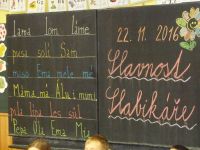 Lama Tom Líme
pusa solí Sám
maso Ema mele me
Máma má Alu i mimi
pila lípa les sůl
Tepa Ola Ema Mia
22. 11. 2016
Slavnost
Slabikáře